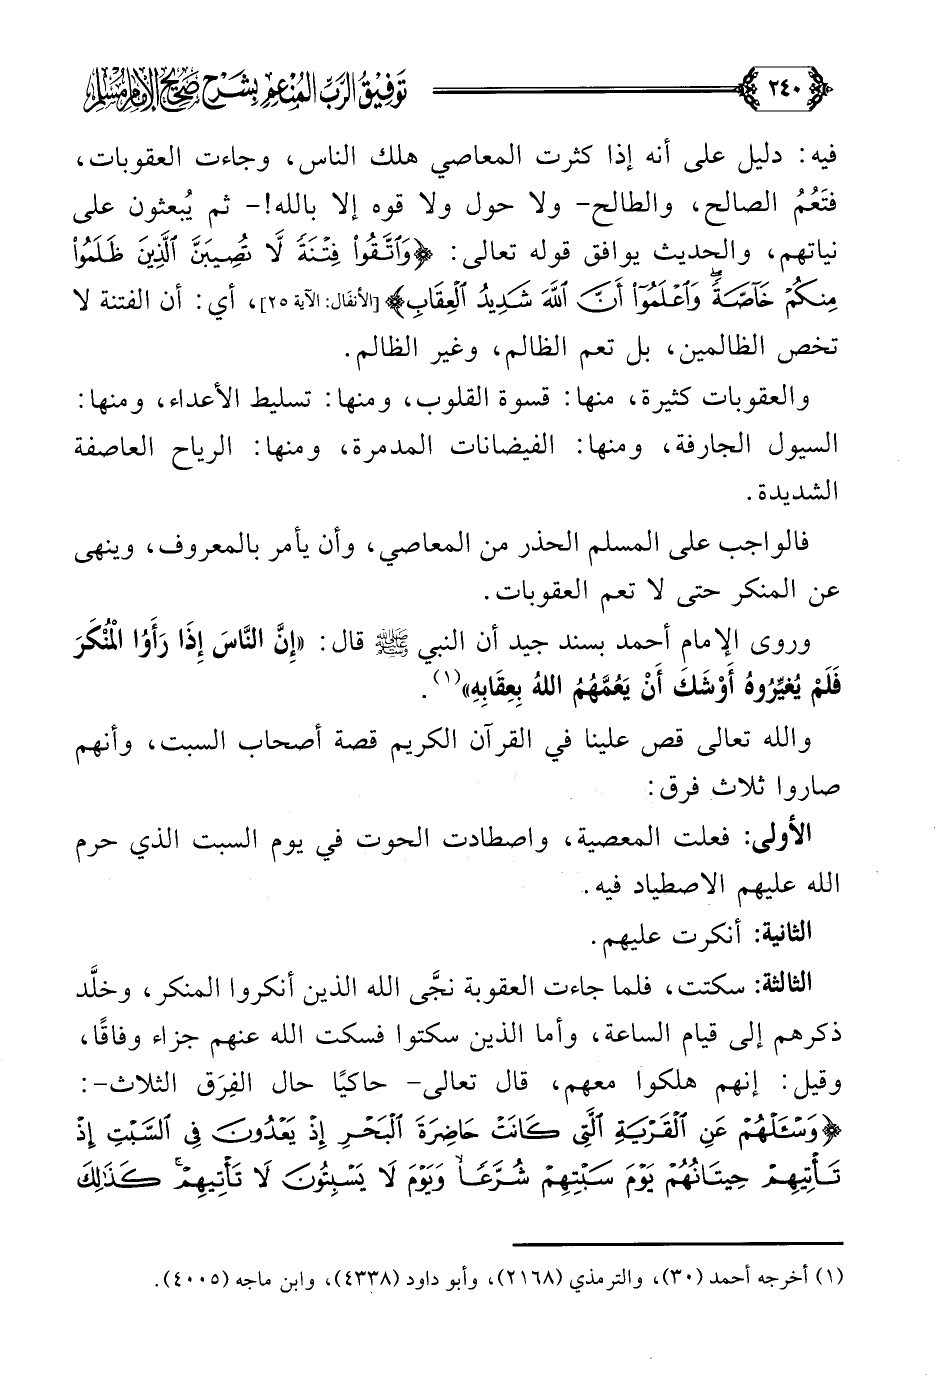 ٢٤٠ توفيق الرب المنعم بشرح صحيح الإمام مسلم
فيه: دليل على أنه إذا كثرت المعاصي هلك الناس، وجاءت العقوبات،
فتَعُمُّ الصالح، والطالح- ولا حول ولا قوه إلا بالله!- ثم يُبعثون على
نياتهم، والحديث يوافق قوله تعالى: ﴿وَٱتَّقُوا۟ فِتْنَةً لَّا تُصِيبَنَّ ٱلَّذِينَ ظَلَمُوا۟
مِنكُمْ خَآصَّةً ۖ وَٱعْلَمُوٓا۟ أَنَّ ٱللَّهَ شَدِيدُ ٱلْعِقَابِ﴾ [الأنفال: الآية ٢٥]، أي: أن الفتنة لا
تخص الظالمين، بل تعم الظالم، وغير الظالم.
والعقوبات كثيرة، منها: قسوة القلوب، ومنها: تسليط الأعداء، ومنها:
السيول الجارفة، ومنها: الفيضانات المدمرة، ومنها: الرياح العاصفة
الشديدة.
فالواجب على المسلم الحذر من المعاصي، وأن يأمر بالمعروف، وينهى
عن المنكر حتى لا تعم العقوبات.
وروى الإمام أحمد بسند جيد أن النبي ﷺ قال: «إِنَّ النَّاسَ إِذَا رَأَوُا الْمُنْكَرَ
فَلَمْ يُغَيِّرُوهُ أَوْشَكَ أَنْ يَعُمَّهُمُ اللهُ بِعِقَابِهِ»(١).
والله تعالى قص علينا في القرآن الكريم قصة أصحاب السبت، وأنهم
صاروا ثلاث فرق:
الأولى: فعلت المعصية، واصطادت الحوت في يوم السبت الذي حرم
الله عليهم الاصطياد فيه.
الثانية: أنكرت عليهم.
الثالثة: سكتت، فلما جاءت العقوبة نجَّى الله الذين أنكروا المنكر، وخلَّد
ذكرهم إلى قيام الساعة، وأما الذين سكتوا فسكت الله عنهم جزاء وفاقًا،
وقيل: إنهم هلكوا معهم، قال تعالى- حاكيًا حال الفِرَق الثلاث-:
﴿وَسْـَٔلْهُمْ عَنِ ٱلْقَرْيَةِ ٱلَّتِى كَانَتْ حَاضِرَةَ ٱلْبَحْرِ إِذْ يَعْدُونَ فِى ٱلسَّبْتِ إِذْ
تَأْتِيهِمْ حِيتَانُهُمْ يَوْمَ سَبْتِهِمْ شُرَّعًا ۙ وَيَوْمَ لَا يَسْبِتُونَ لَا تَأْتِيهِمْ ۚ كَذَٰلِكَ
(١) أخرجه أحمد (٣٠)، والترمذي (٢١٦٨)، وأبو داود (٤٣٣٨)، وابن ماجه (٤٠٠٥).